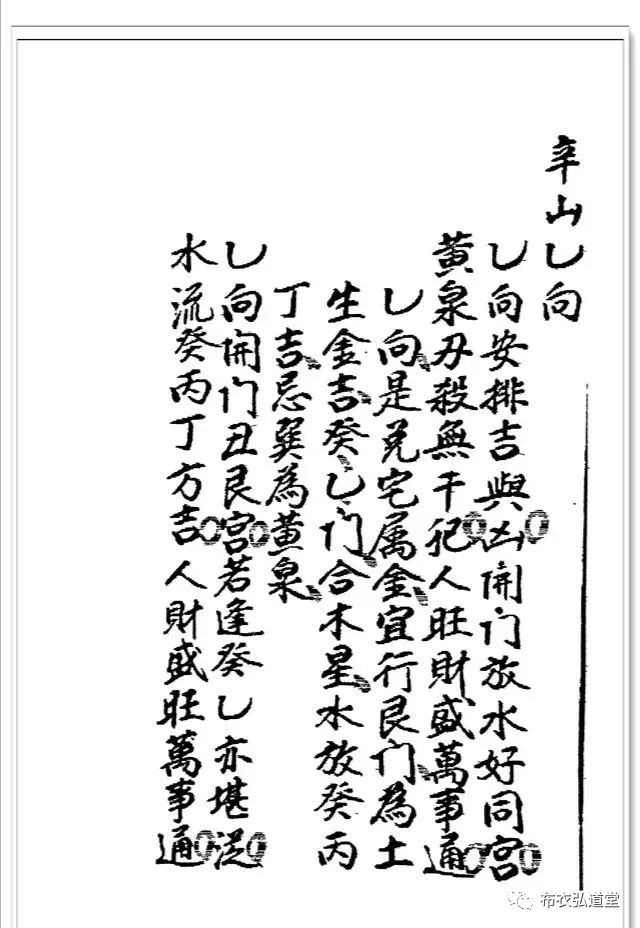 辛山乙向
乙向安排吉與凶開门放水好同宫
黄泉刃殺無干犯人旺財盛萬事通
乙向是兑宅属金宜行艮门為土
生金吉癸乙门合木星水放癸丙
丁吉忌巽為黄泉
乙向開门丑艮宫若逢癸乙亦堪从
水流癸丙丁方吉人財盛旺萬事通
布衣弘道堂